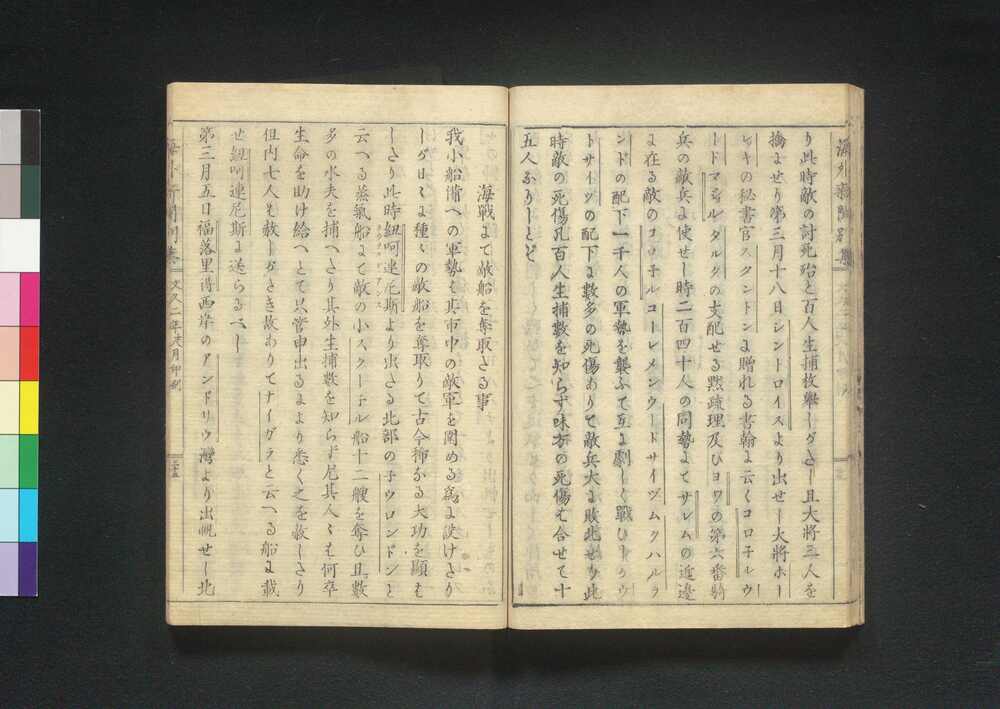 り此時敵の討死殆と百人生捕枚擧しがたし且大將三人を
擒ませり第三月十八日シントロイスより出せし大將ホー
の秘書官スタントンに贈れる書翰に云くコロ子ルウ
ードマ タルグの支配せる黙疏理及ひヨワの第六番騎
兵の敵兵に使せし時二百四十人の同勢にてサレムの近邊
に在る敵のコロ子ルコーレメンウードサイヅムクハルラ
ンドの配下一千人の軍勢を襲ふて互に劇しく戰ひし
トサイヅの配下に數多の死傷ありて敵兵大に敗北せり此
時敵の死傷凡百人生捕數を知らず味方の死傷は合せて十
五人なりしとぞ
海戰にて敵船を奪取たる事
我小船備への軍勢は其市中の敵軍を圍める爲に設けたり
しが日々に種々の敵船を奪取りて古今稀なる大功を顯は
したり此時紐呵連尼斯より出たる北部の子ウロンドンと
云へる蒸氣船にて敵の小スクー子ル船十二艘を奪ひ且數
多の水夫を捕へたり其外生捕數を知らず尤其人々は何卒
生命を助け給へとて只管申出るにより悉く之を赦したり
但内七人は赦しがたき故ありてナイグラと云へる船に載
せ紐呵連尼斯に送らるべし
第三月五日福落里得西岸のアンドリウ灣より出帆せし北
文久二年 月印刻